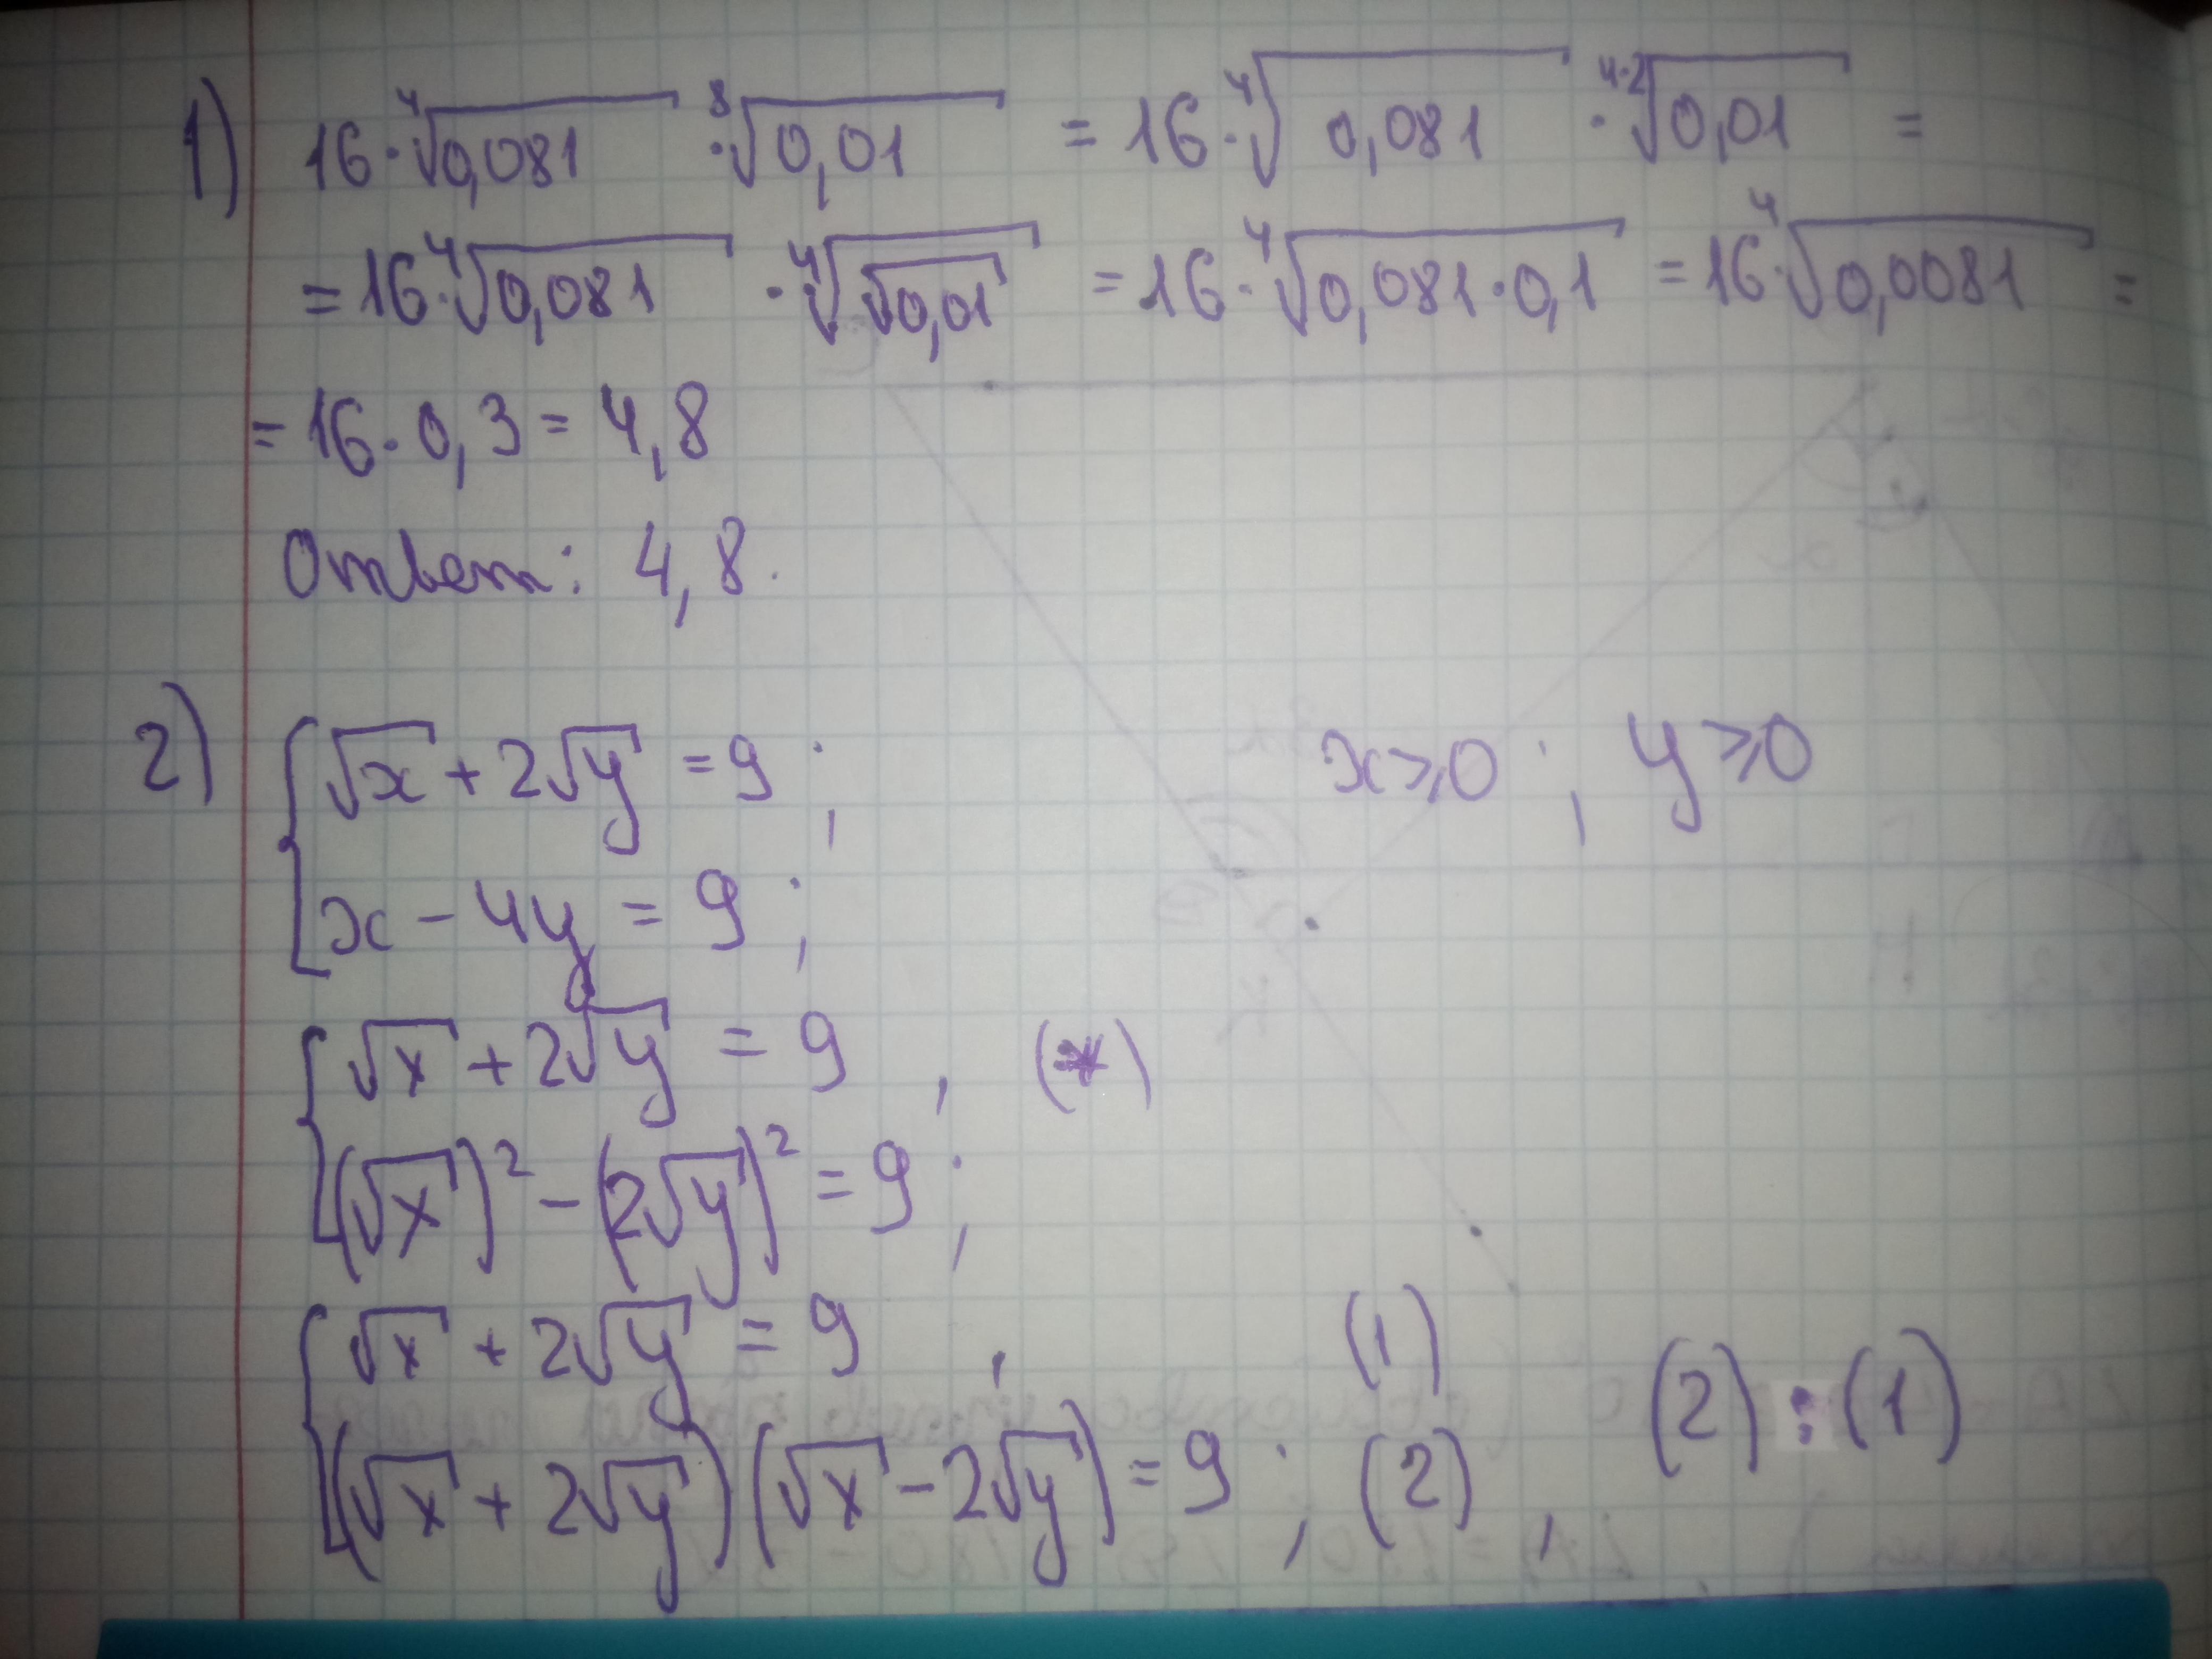 1) 16·⁴√0,081 ·⁸√0,01 = 16·⁴√0,081 · ⁴·²√0,01 =
= 16·⁴√0,081 · ⁴√√0,01 = 16·⁴√0,081·0,1 = 16·⁴√0,0081 =
= 16·0,3 = 4,8
Ответ: 4,8.
2) { √x + 2√y = 9 ; x ⩾ 0 ; y ⩾ 0
x - 4y = 9 ;
{ √x + 2√y = 9 , (*)
(√x)² - (2√y)² = 9 ;
{ √x + 2√y = 9 , (1)
(√x + 2√y)(√x - 2√y) = 9 ; (2) , (2) : (1)